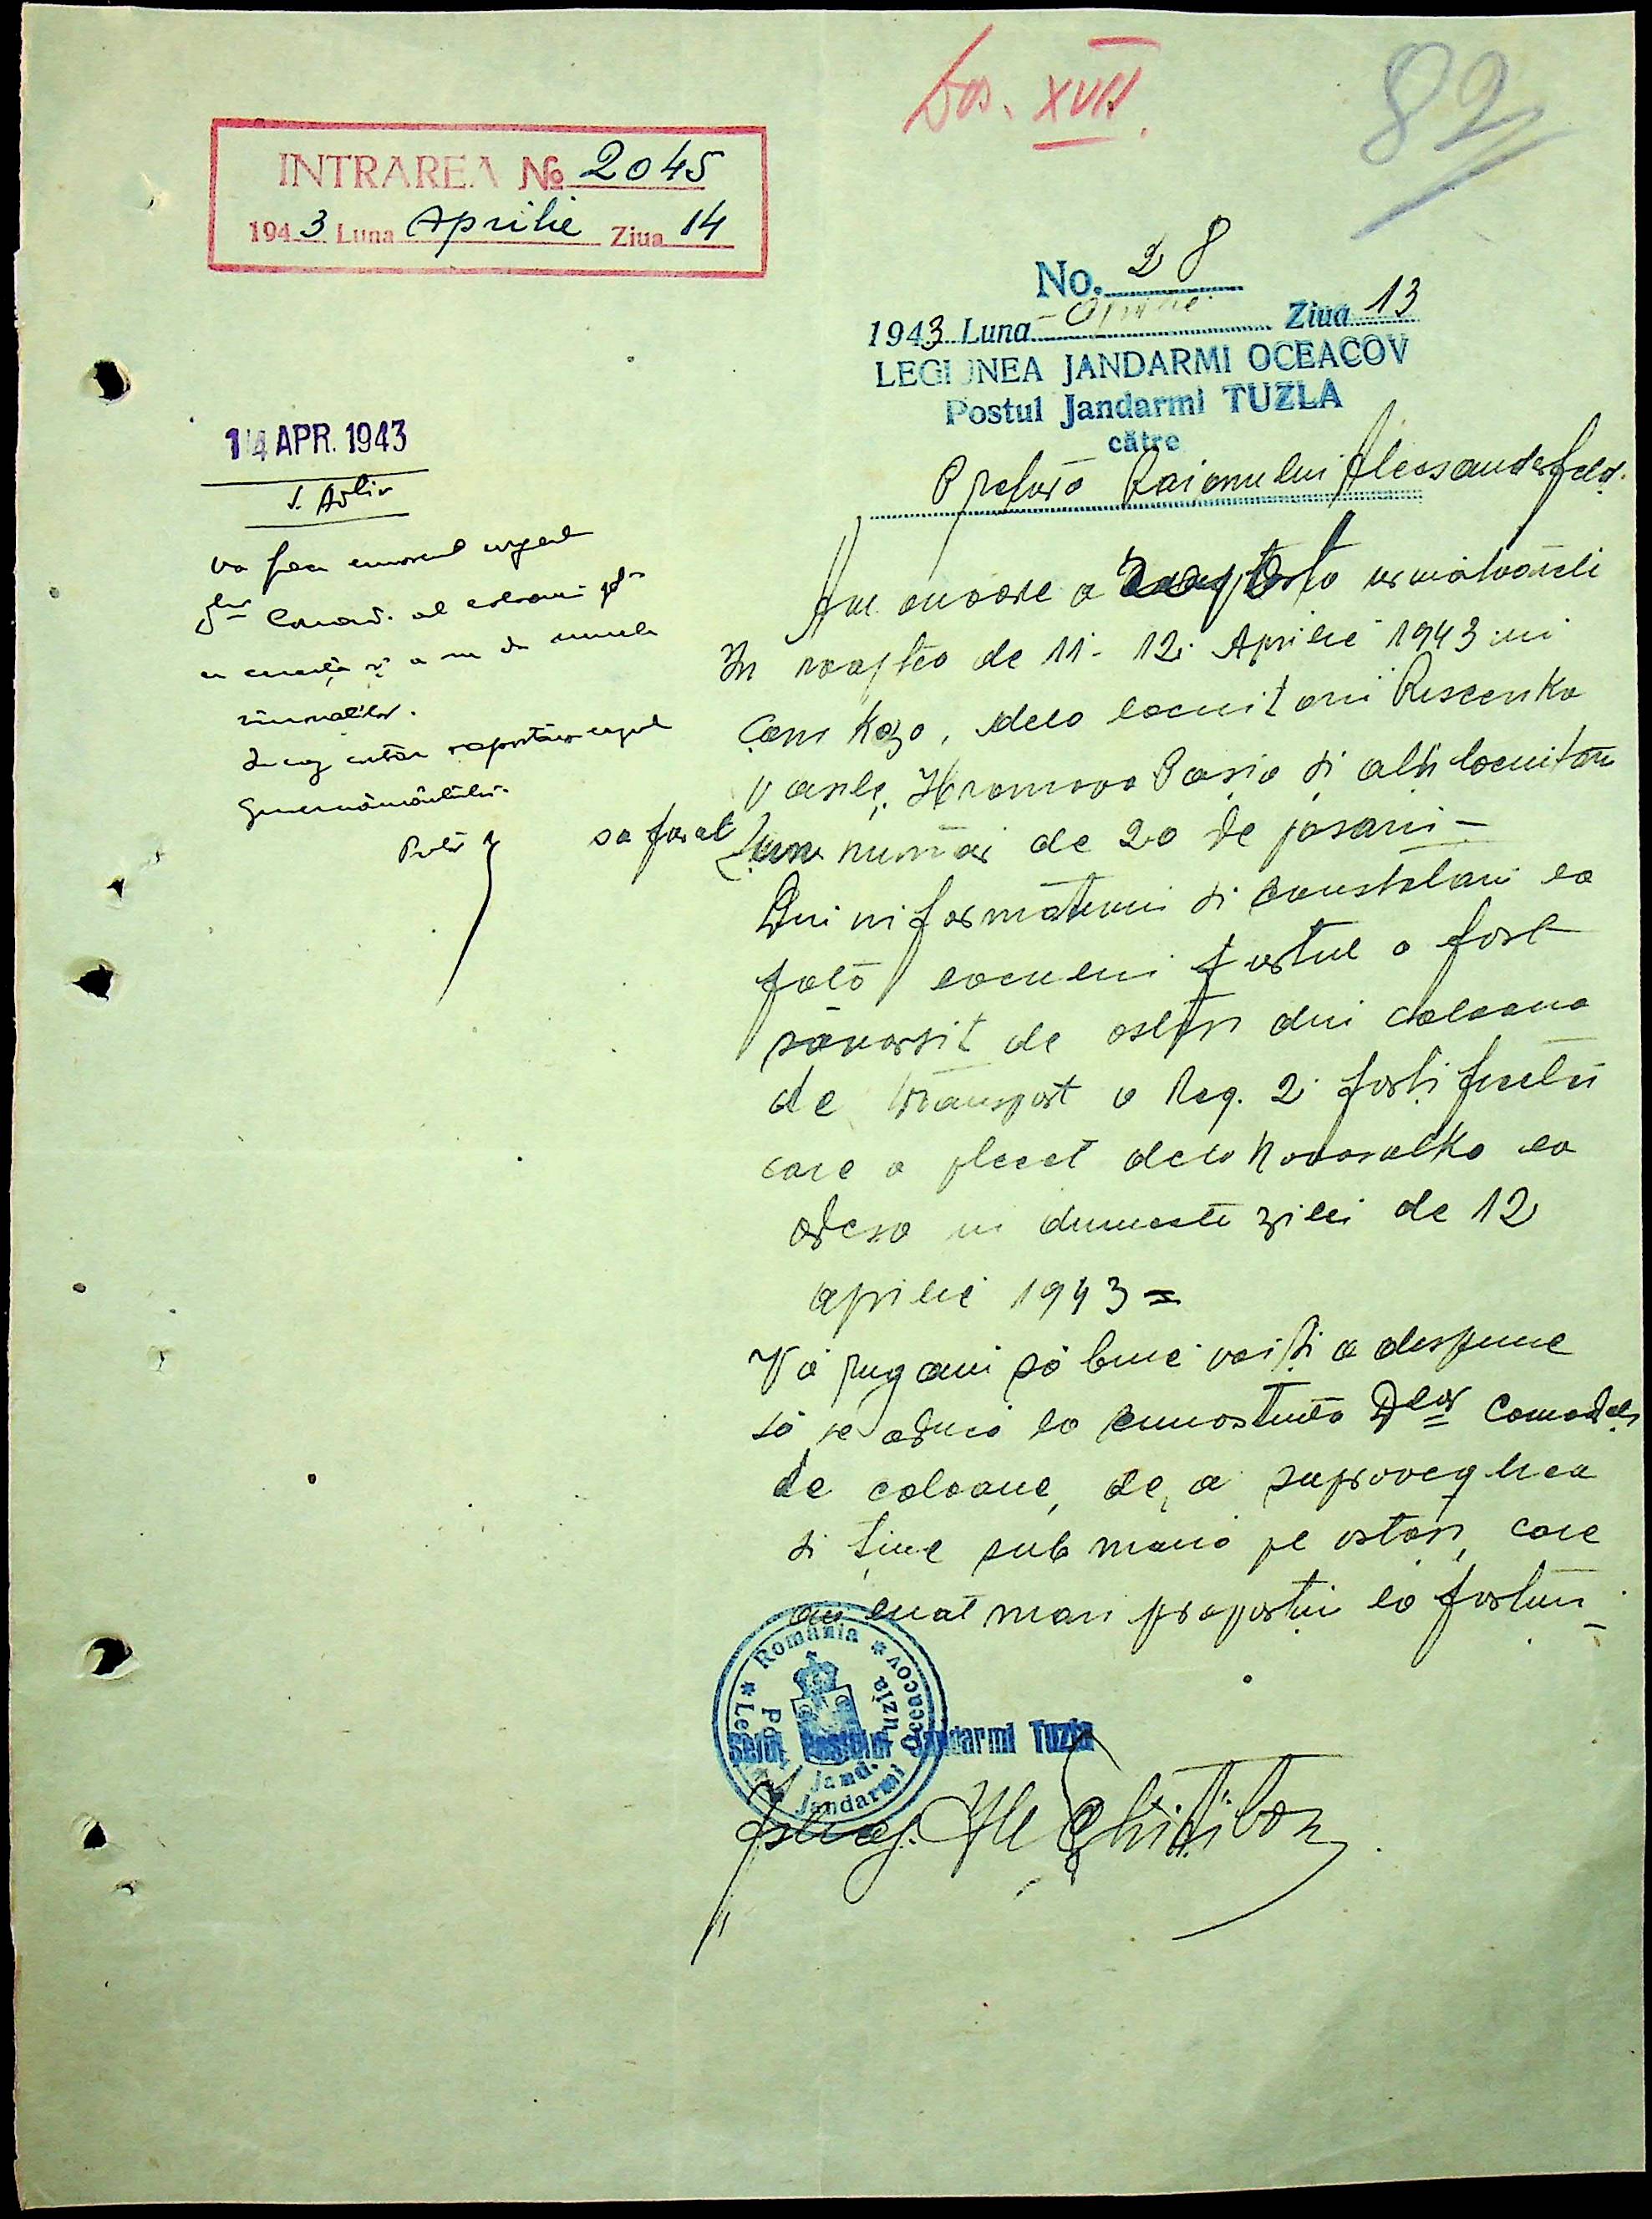 Dos. XVII.
82
INTRAREA No 2045
1943 Luna Aprilie Ziua 14
No. 28
1943 Luna Aprilie Ziua 13
LEGIUNEA JANDARMI OCEACOV
Postul Jandarmi TUZLA
către
Pretura Raionului Alecsanderfeld.
14 APR. 1943
Va face cunoscut urgent
Comand. al coloanei
a cerceta și a ne da numele
În caz contrar raportăm cazul
Guvernământului.
Am onoare a raporta următoarele
În noaptea de 11-12 Aprilie 1943 in
com Kazo, dela locuitorii
Vasile, Hromova Pașa și alți locuitori
sa furat un număr de 20 de pasari -
Din informațiuni si constatari la
fața locului furtul a fost
săvarșit de ostași din coloana
de transport a Reg. 2 fortificatii
care a plecat dela la
Odesa in dimineata zilei de 12
Aprilie 1943 =
Vă rugam să bine voiți a dispune
să se aducă la cunostința Dlor Comandați
de coloane, de a supraveghea
si ține sub mană pe ostași, care
au luat mari proporții la furturi -
România
Legiunea Jandarmi Oceacov
Post Jand. Tuzla
Seful Postului Jandarmi Tuzla